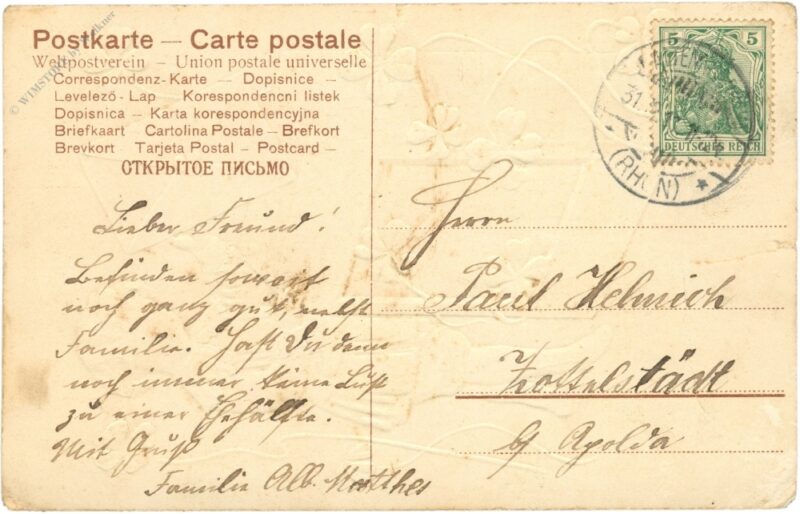 Postkarte — Carte postale
Weltpostverein — Union postale universelle
Correspondenz-Karte — Dopisnice —
Levelező-Lap Korespondencni listek
Dopisnica — Karta korespondencyjna
Briefkaart Cartolina Postale — Brefkort
Brevkort Tarjeta Postal — Postcard —
ОТКРЫТОЕ ПИСЬМО
Lieber Freund!
Befinden sowort
noch ganz gut, nebst
Familie. Hast Du denn
noch immer keine Lust
zu einer Ehehälfte.
Mit Gruß
Familie Alb. Matthes
5 5
DEUTSCHES REICH
31.
(RHÖN)
Herrn
Paul Helmich
Zottelstädt
b/ Apolda
© WIMSTORE by Falkner